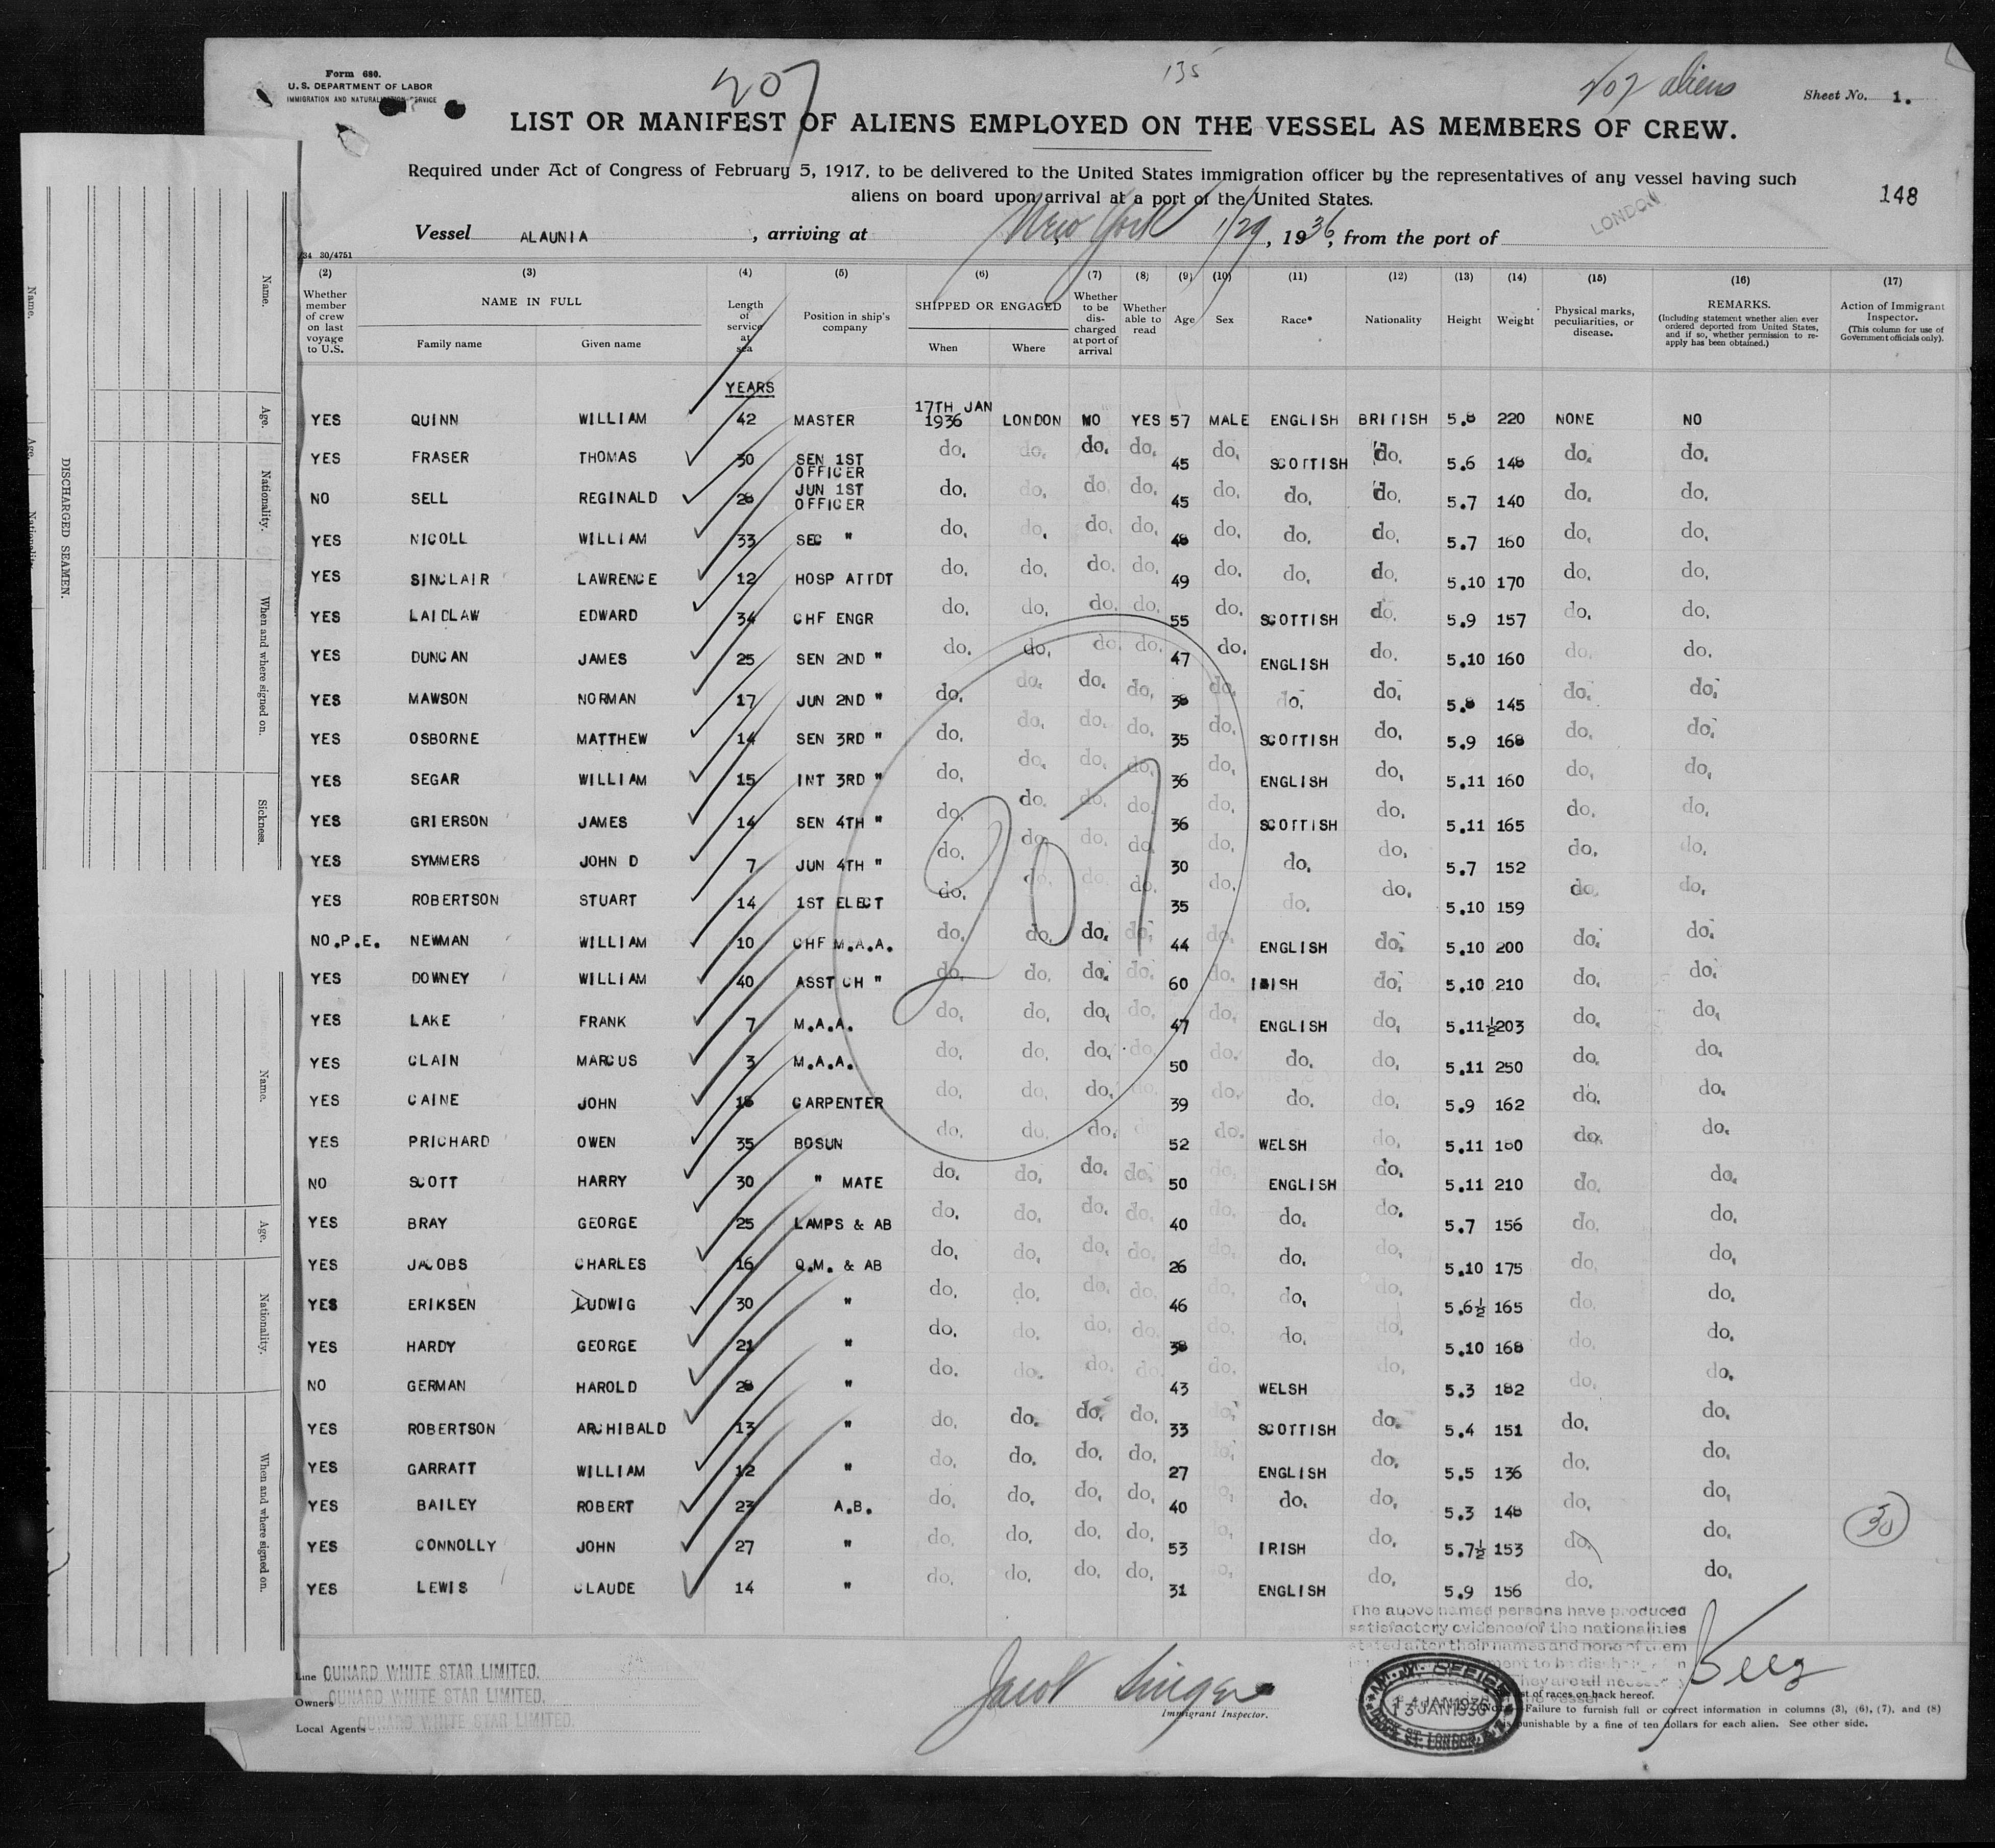 Form 680.
U. S. DEPARTMENT OF LABOR
IMMIGRATION AND NATURALIZATION SERVICE
207
135
207 aliens
Sheet No. 1.
LIST OR MANIFEST OF ALIENS EMPLOYED ON THE VESSEL AS MEMBERS OF CREW.
Required under Act of Congress of February 5, 1917, to be delivered to the United States immigration officer by the representatives of any vessel having such
aliens on board upon arrival at a port of the United States.
148
Vessel ALAUNIA, arriving at New York 1/29, 1936, from the port of LONDON
34 30/4751
(2) (3) (4) (5) (6) (7) (8) (9) (10) (11) (12) (13) (14) (15) (16) (17)
Whether member of crew on last voyage to U.S. NAME IN FULL Family name Given name Length of service at sea Position in ship's company SHIPPED OR ENGAGED When Where Whether to be discharged at port of arrival Whether able to read Age Sex Race* Nationality Height Weight Physical marks, peculiarities, or disease. REMARKS. (Including statement whether alien ever ordered deported from United States, and if so, whether permission to re-apply has been obtained.) Action of Immigrant Inspector. (This column for use of Government officials only).
YEARS
YES QUINN WILLIAM 42 MASTER 17TH JAN 1936 LONDON NO YES 57 MALE ENGLISH BRITISH 5.8 220 NONE NO
YES FRASER THOMAS 30 SEN 1ST OFFICER do. do. do. do. 45 do. SCOTTISH do. 5.6 148 do. do.
NO SELL REGINALD 28 JUN 1ST OFFICER do. do. do. do. 45 do. do. do. 5.7 140 do. do.
YES NICOLL WILLIAM 33 SEC " do. do. do. do. 48 do. do. do. 5.7 160 do. do.
YES SINCLAIR LAWRENCE 12 HOSP ATTDT do. do. do. do. 49 do. do. do. 5.10 170 do. do.
YES LAIDLAW EDWARD 34 CHF ENGR do. do. do. do. 55 do. SCOTTISH do. 5.9 157 do. do.
YES DUNCAN JAMES 25 SEN 2ND " do. do. do. do. 47 do. ENGLISH do. 5.10 160 do. do.
YES MAWSON NORMAN 17 JUN 2ND " do. do. do. do. 38 do. do. do. 5.8 145 do. do.
YES OSBORNE MATTHEW 14 SEN 3RD " do. do. do. do. 35 do. SCOTTISH do. 5.9 168 do. do.
YES SEGAR WILLIAM 15 INT 3RD " do. do. do. do. 36 do. ENGLISH do. 5.11 160 do. do.
YES GRIERSON JAMES 14 SEN 4TH " do. do. do. do. 36 do. SCOTTISH do. 5.11 165 do. do.
YES SYMMERS JOHN D 7 JUN 4TH " do. do. do. do. 30 do. do. do. 5.7 152 do. do.
YES ROBERTSON STUART 14 1ST ELECT do. do. do. do. 35 do. do. do. 5.10 159 do. do.
NO.P.E. NEWMAN WILLIAM 10 CHF M.A.A. do. do. do. do. 44 do. ENGLISH do. 5.10 200 do. do.
YES DOWNEY WILLIAM 40 ASST CH " do. do. do. do. 60 do. IRISH do. 5.10 210 do. do.
YES LAKE FRANK 7 M.A.A. do. do. do. do. 47 do. ENGLISH do. 5.11½ 203 do. do.
YES CLAIN MARCUS 3 M.A.A. do. do. do. do. 50 do. do. do. 5.11 250 do. do.
YES CAINE JOHN 18 CARPENTER do. do. do. do. 39 do. do. do. 5.9 162 do. do.
YES PRICHARD OWEN 35 BOSUN do. do. do. 52 do. WELSH do. 5.11 180 do. do.
NO SCOTT HARRY 30 " MATE do. do. do. do. 50 do. ENGLISH do. 5.11 210 do. do.
YES BRAY GEORGE 25 LAMPS & AB do. do. do. do. 40 do. do. do. 5.7 156 do. do.
YES JACOBS CHARLES 16 Q.M. & AB do. do. do. do. 26 do. do. do. 5.10 175 do. do.
YES ERIKSEN LUDWIG 30 " do. do. do. do. 46 do. do. do. 5.6½ 165 do. do.
YES HARDY GEORGE 21 " do. do. do. do. 38 do. do. do. 5.10 168 do. do.
NO GERMAN HAROLD 28 " do. do. do. do. 43 do. WELSH do. 5.3 182 do. do.
YES ROBERTSON ARCHIBALD 13 " do. do. do. do. 33 do. SCOTTISH do. 5.4 151 do. do.
YES GARRATT WILLIAM 12 " do. do. do. do. 27 do. ENGLISH do. 5.5 136 do. do.
YES BAILEY ROBERT 23 A.B. do. do. do. do. 40 do. do. do. 5.3 148 do. do.
YES CONNOLLY JOHN 27 " do. do. do. do. 53 do. IRISH do. 5.7½ 153 do. do.
YES LEWIS CLAUDE 14 " do. do. do. do. 31 do. ENGLISH do. 5.9 156 do. do.
207
30
The above named persons have produced
satisfactory evidence of the nationalities
stated after their names and none of them
Line CUNARD WHITE STAR LIMITED.
Owners CUNARD WHITE STAR LIMITED.
Local Agents CUNARD WHITE STAR LIMITED.
Jacob Singer
Immigrant Inspector.
M.M. OFFICE
13 JAN 1936
DOCK ST. LONDON. E.1.
list of races on back hereof.
Note.—Failure to furnish full or correct information in columns (3), (6), (7), and (8)
is punishable by a fine of ten dollars for each alien. See other side.
DISCHARGED SEAMEN.
Name.
Age.
Nationality.
When and where signed on.
Sickness.
Name.
Age.
Nationality.
When and where signed on.
Name.
Age.